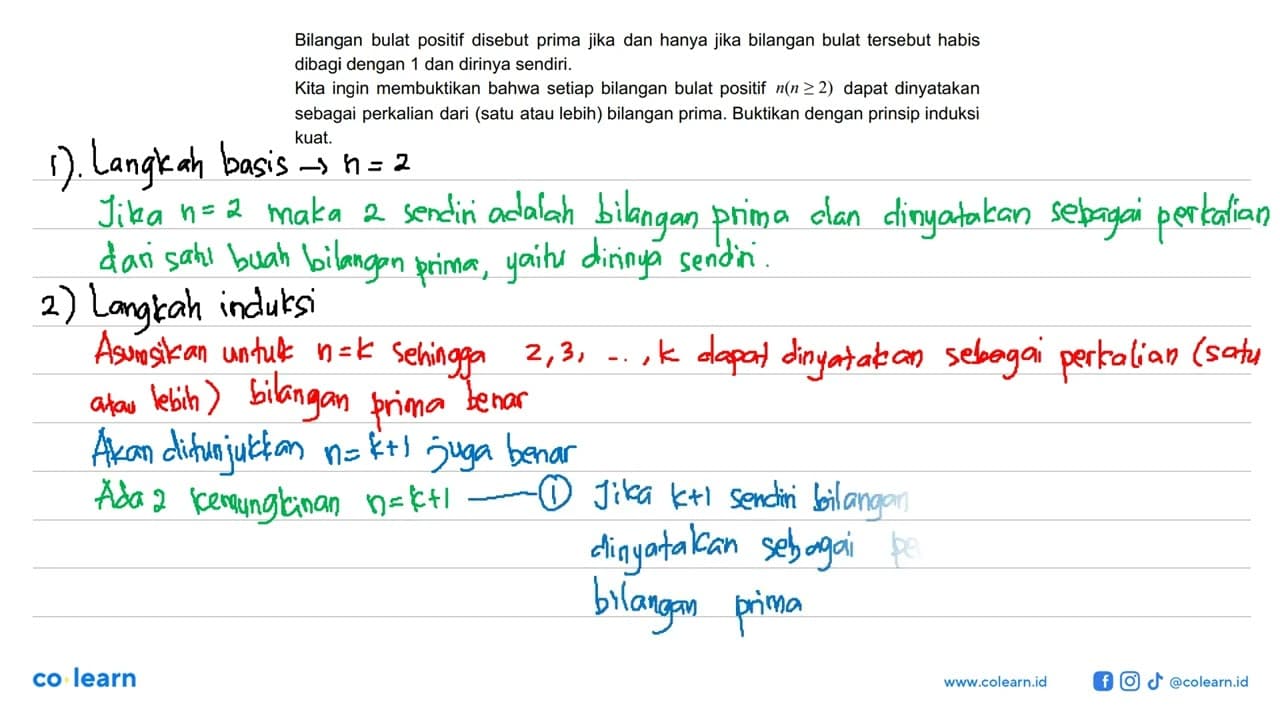 Bilangan bulat positif disebut prima jika dan hanya jika bilangan bulat tersebut habis
dibagi dengan 1 dan dirinya sendiri.
Kita ingin membuktikan bahwa setiap bilangan bulat positif n(n ≥ 2) dapat dinyatakan
sebagai perkalian dari (satu atau lebih) bilangan prima. Buktikan dengan prinsip induksi
kuat.
1). Langkah basis → n = 2
Jika n = 2 maka 2 sendiri adalah bilangan prima dan dinyatakan sebagai perkalian
dari satu buah bilangan prima, yaitu dirinya sendiri.
2) Langkah induksi
Asumsikan untuk n=k sehingga 2, 3, ..., k dapat dinyatakan sebagai perkalian (satu
atau lebih) bilangan prima benar
Akan ditunjukkan n= k+1 juga benar
Ada 2 kemungkinan n=k+1 — ① Jika k+1 sendiri bilangan
dinyatakan sebagai pe
bilangan prima
co learn
www.colearn.id
@colearn.id